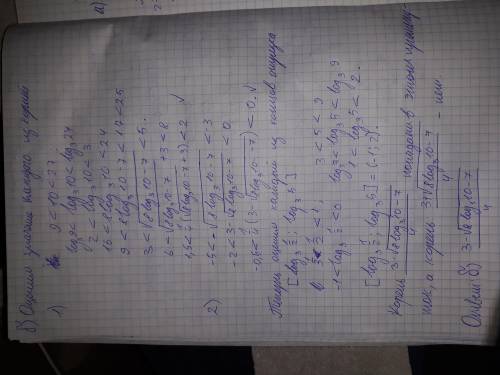 а)
б) Оценим значение каждого из корней
1) 9 < 10 < 27
log₃9 < log₃10 < log₃27
2 < log₃10 < 3
16 < 8log₃10 < 24
9 < 8log₃10-7 < 17 < 25
3 < √(8log₃10-7) < 5.
6 < √(8log₃10-7) + 3 < 8
1,5 < 1/4(√(8log₃10-7)+3) < 2 √
2) -5 < -√(8log₃10-7) < -3
-2 < 3-√(8log₃10-7) < 0
-0,5 < 1/4(3-√(8log₃10-7)) < 0. √
Теперь оценим каждый из концов отрезка
[log₃ 1/2; log₃ 5]
1/3 < 1/2 < 1, 3 < 5 < 9
-1 < log₃ 1/2 < 0 log₃3 < log₃5 < log₃9
1 < log₃5 < 2.
[log₃ 1/2; log₃5] = (-1; 2).
Корень (3-√(8log₃10-7))/4 попадает в этот промежу-
ток, а корень (3+√(8log₃10-7))/4 - нет.
Ответ: б) (3-√(8log₃10-7))/4